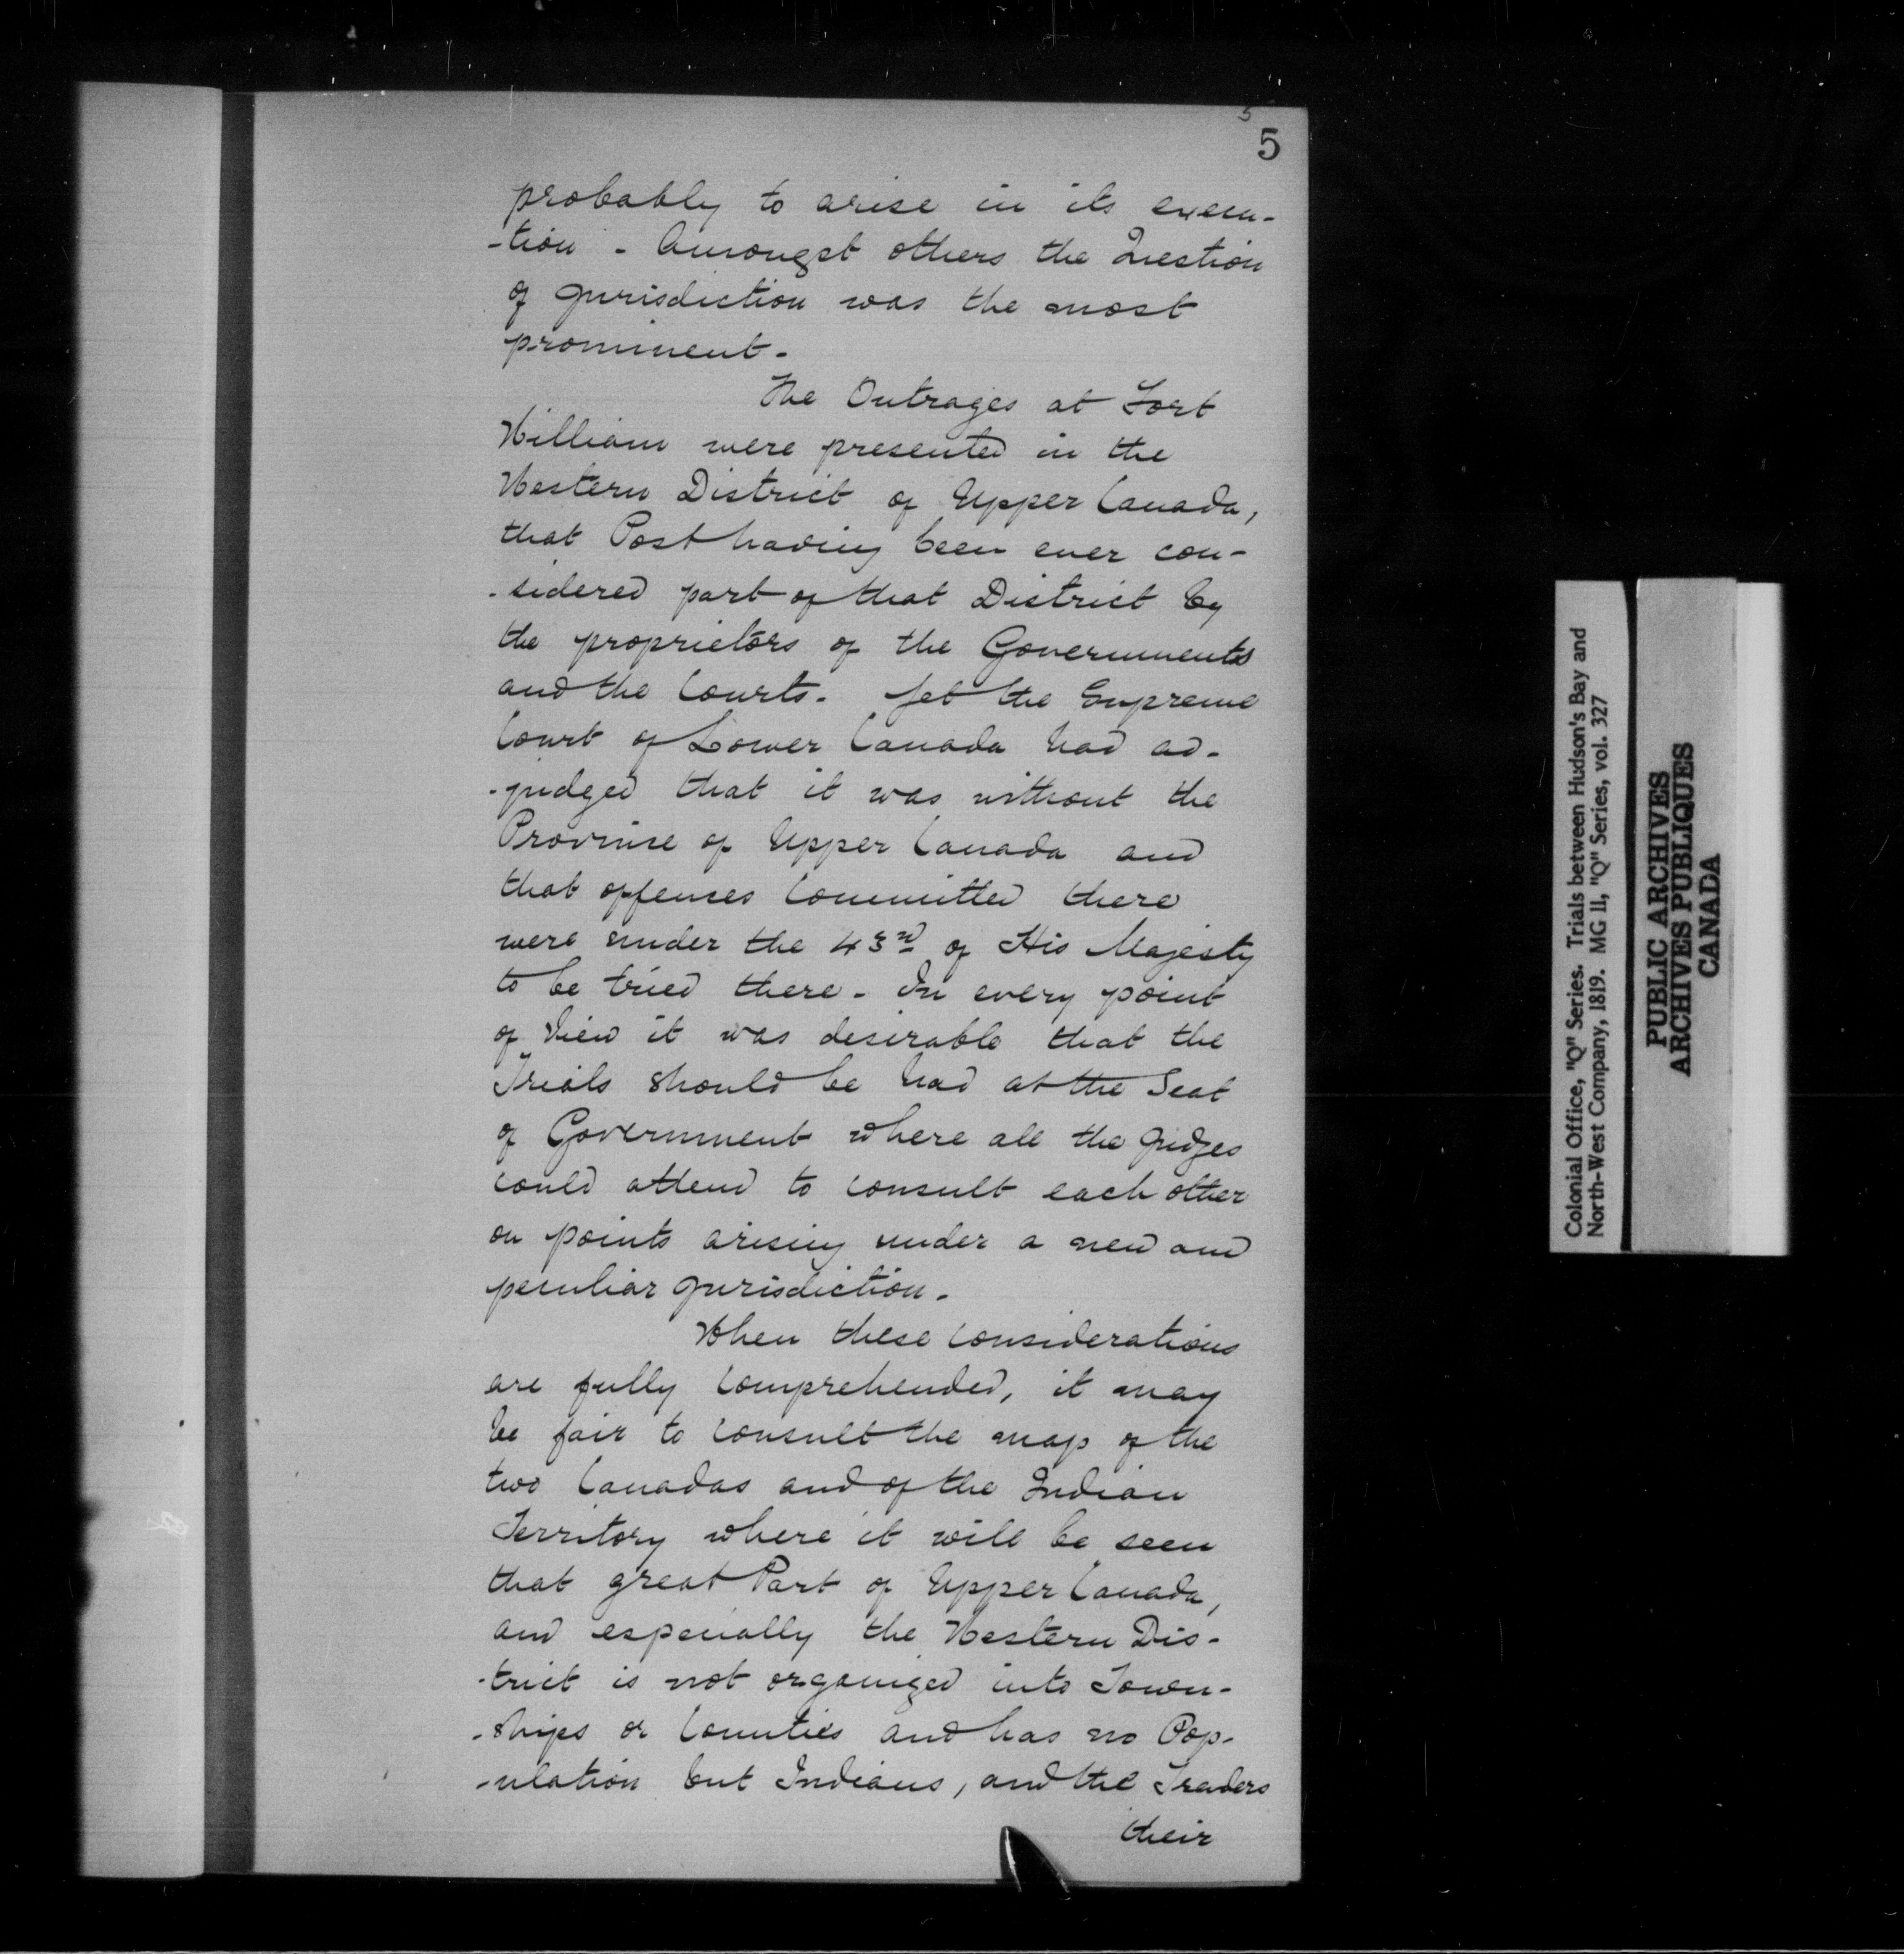 5
5
probably to arise in its execu-
-tion - Amongst others the Question
of Jurisdiction was the most
prominent -
The Outrages at Fort
William were presented in the
Western District of Upper Canada,
that Post having been ever con-
-sidered part of that District by
the proprietors of the Governments
and the Courts. Yet the Supreme
Court of Lower Canada had ad-
-judged that it was without the
Province of Upper Canada and
that offences committed there
were under the 43rd of His Majesty
to be tried there - In every point
of View it was desirable that the
Trials should be had at the Seat
of Government where all the Judges
could attend to consult each other
on points arising under a new and
peculiar Jurisdiction.
When these considerations
are fully comprehended, it may
be fair to consult the map of the
two Canadas and of the Indian
Territory where it will be seen
that great Part of Upper Canada,
and especially the Western Dis-
-trict is not organized into Town-
-ships or Counties and has no Pop-
-ulation but Indians, and the Traders
their
Colonial Office, "Q" Series. Trials between Hudson's Bay and
North-West Company, 1819. MG 11, "Q" Series, vol. 327
PUBLIC ARCHIVES
ARCHIVES PUBLIQUES
CANADA